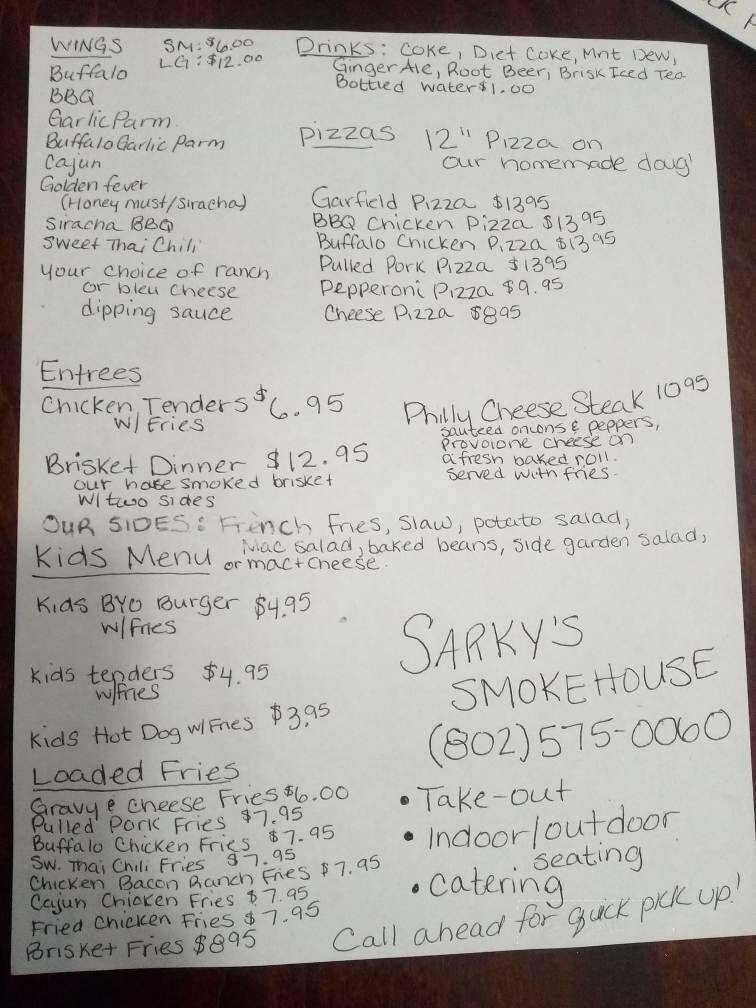 WINGS SM: $6.00
LG: $12.00
Buffalo
BBQ
Garlic Parm.
Buffalo Garlic Parm
Cajun
Golden fever
(Honey must/Siracha)
Siracha BBQ
Sweet Thai Chili
your choice of ranch
or bleu cheese
dipping sauce
Drinks: Coke, Diet Coke, Mnt Dew,
Ginger Ale, Root Beer, Brisk Iced Tea
Bottled water $1.00
Pizzas 12" Pizza on
our homemade doug
Garfield Pizza $13.95
BBQ Chicken Pizza $13.95
Buffalo Chicken Pizza $13.95
Pulled Pork Pizza $13.95
Pepperoni Pizza $9.95
Cheese Pizza $8.95
Entrees
Chicken Tenders $6.95
w/ Fries
Brisket Dinner $12.95
our house smoked brisket
w/ two sides
Philly Cheese Steak 10.95
sauteed onions & peppers,
provolone cheese on
a fresh baked roll.
served with fries.
OUR SIDES: French fries, Slaw, potato salad,
Mac salad, baked beans, side garden salad,
or mac + cheese.
Kids Menu
Kids BYO Burger $4.95
w/fries
Kids tenders $4.95
w/fries
Kids Hot Dog w/ Fries $3.95
Loaded Fries
Gravy & cheese Fries $6.00
Pulled Pork Fries $7.95
Buffalo Chicken Fries $7.95
Sw. Thai Chili Fries $7.95
Chicken Bacon Ranch Fries $7.95
Cajun Chicken Fries $7.95
Fried Chicken Fries $7.95
Brisket Fries $8.95
SARKY'S
SMOKEHOUSE
(802) 575-0060
• Take-out
• Indoor/outdoor
seating
• Catering
Call ahead for quick pick up!